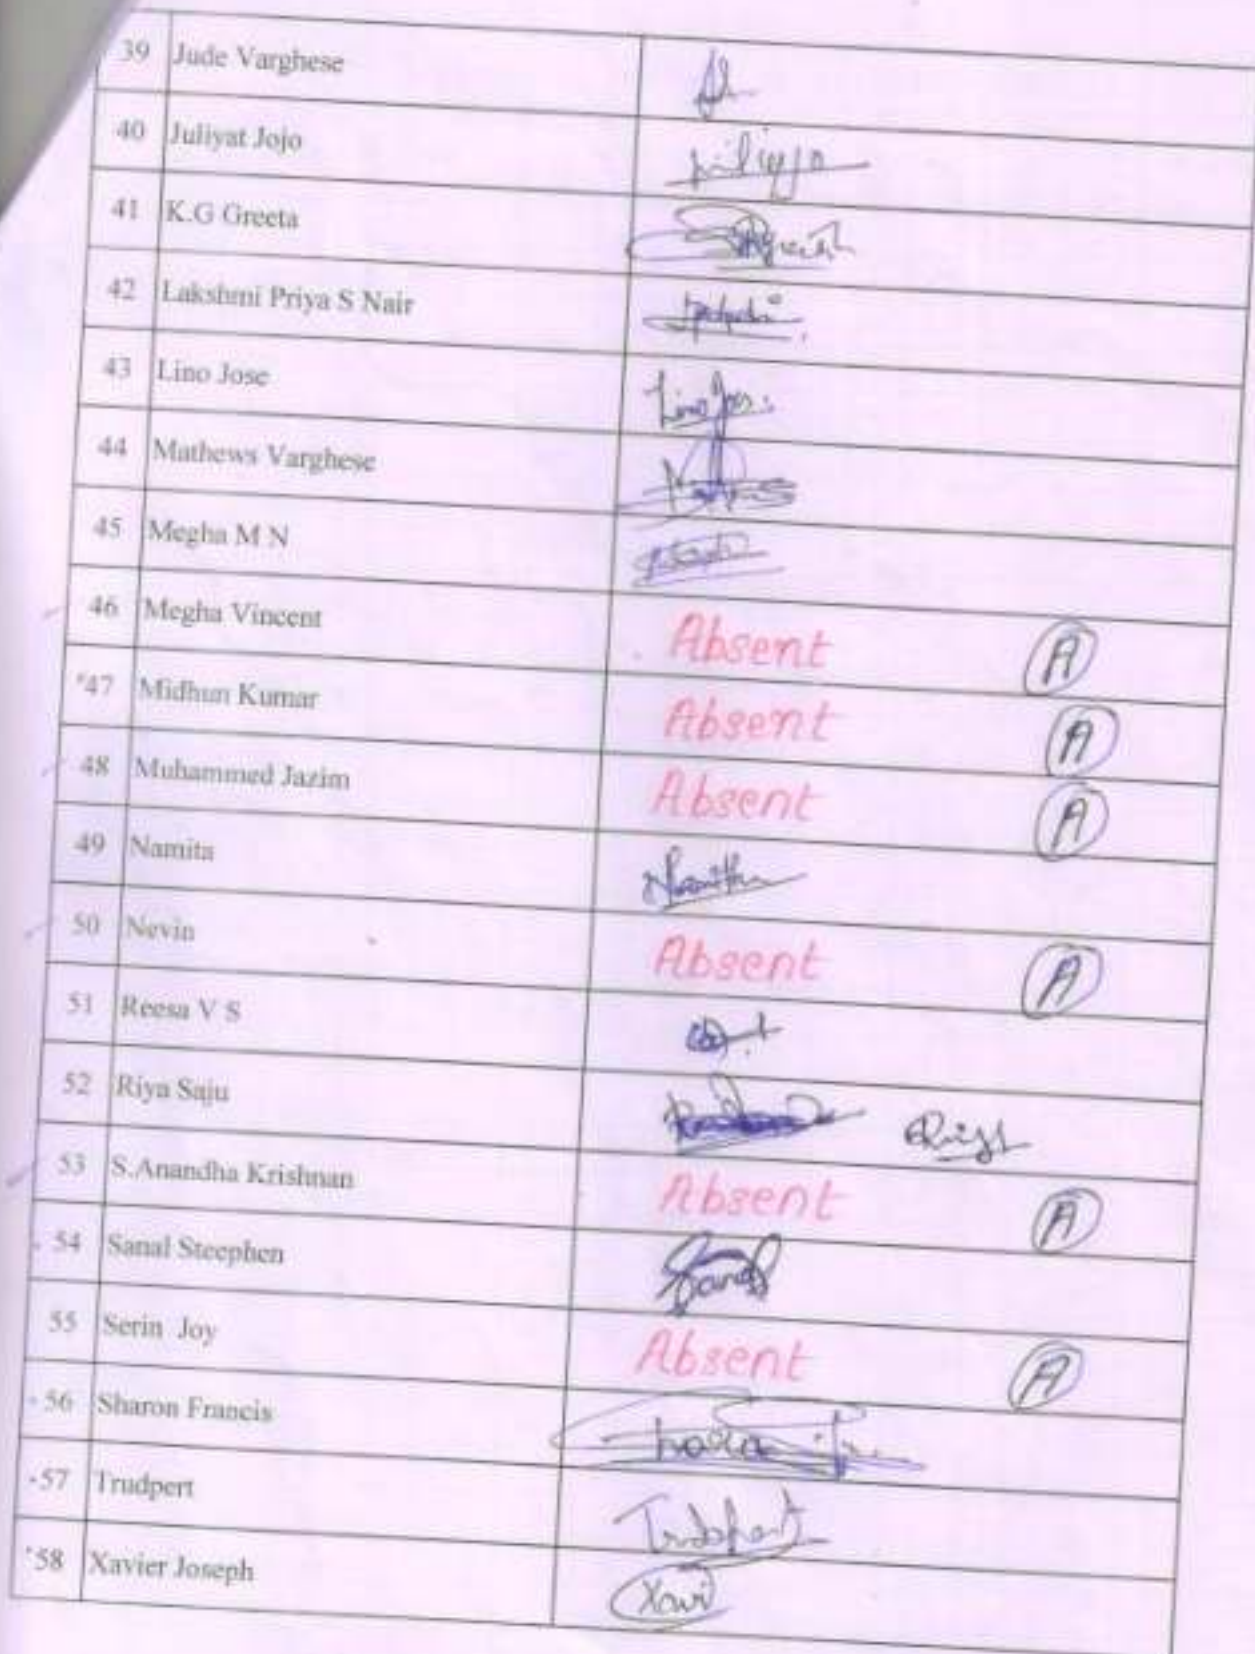 39 Jude Varghese
40 Juliyat Jojo
41 K.G Greeta
42 Lakshmi Priya S Nair
43 Lino Jose Lino Jose
44 Mathews Varghese
45 Megha M N
46 Megha Vincent Absent A
47 Midhun Kumar Absent A
48 Muhammed Jazim Absent A
49 Namita Namitha
50 Nevin Absent A
51 Reesa V S
52 Riya Saju
53 S.Anandha Krishnan Absent A
54 Sanal Steephen Sanal
55 Serin Joy Absent A
56 Sharon Francis
57 Trudpert Trudpert
58 Xavier Joseph Xavi